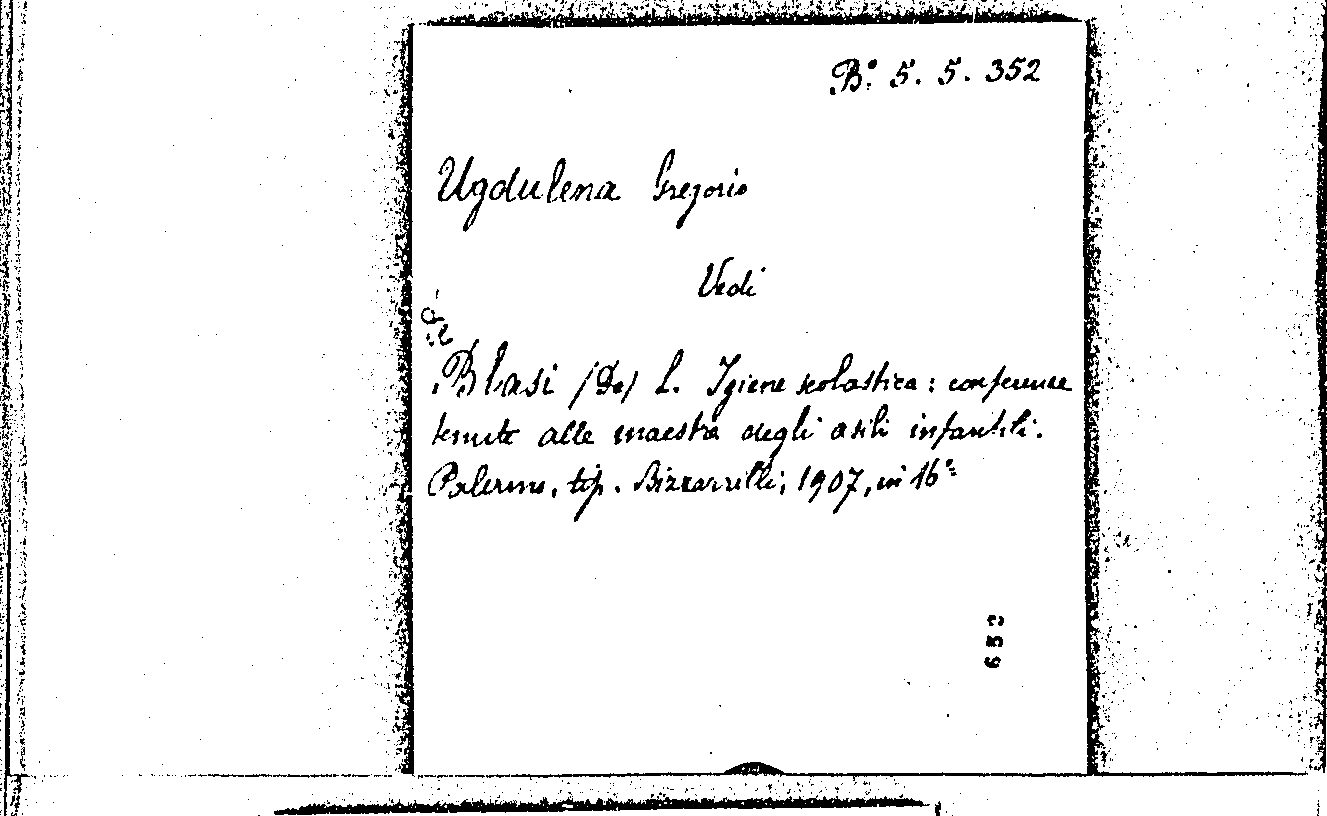 B.º 5. 5. 352
Ugdulena Gregorio
Vedi
Blasi (De) L. Igiene scolastica: conferenze
tenute alle maestre degli asili infantili.
Palermo, tip. Bizzarrilli, 1907, in 16º
652